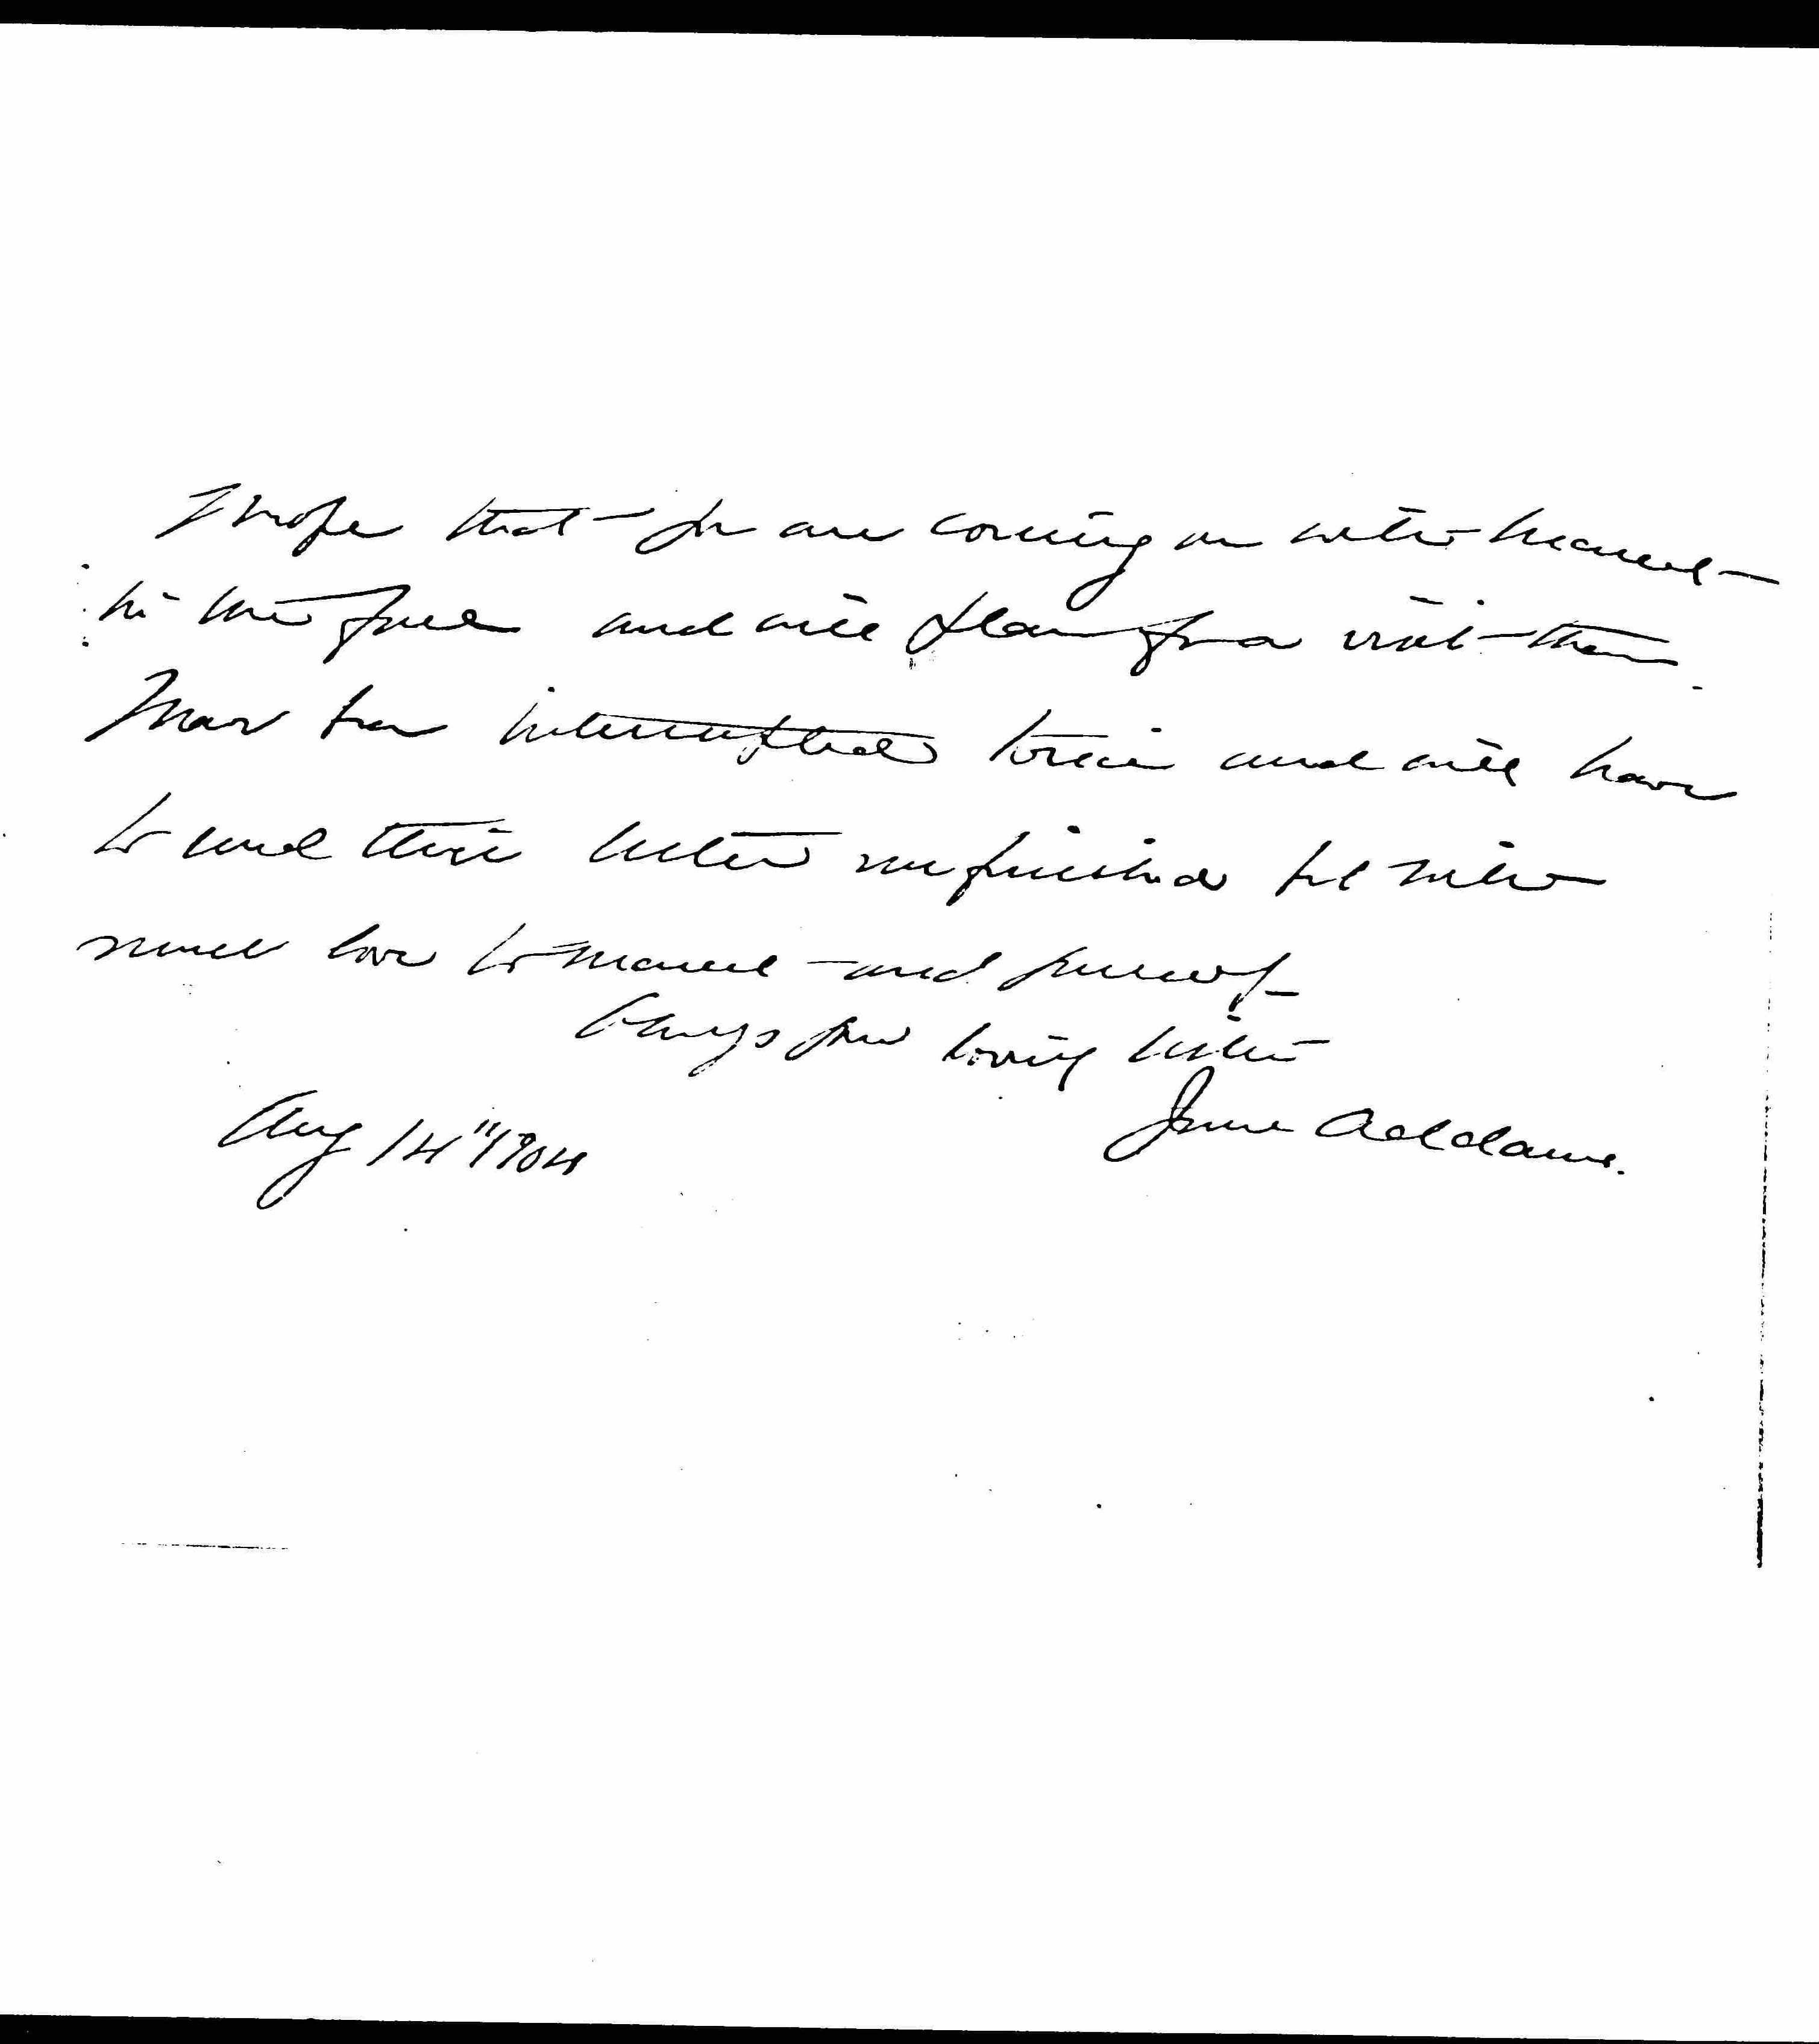 I hope that you are coming on with Marcet
in the fall and will plan for a visit then.
I have been interrupted twice and will have
to send this letter unfinished but with
much love to Marcet and yourself
Always your loving sister
Jane Addams.
Aug 14" 1904